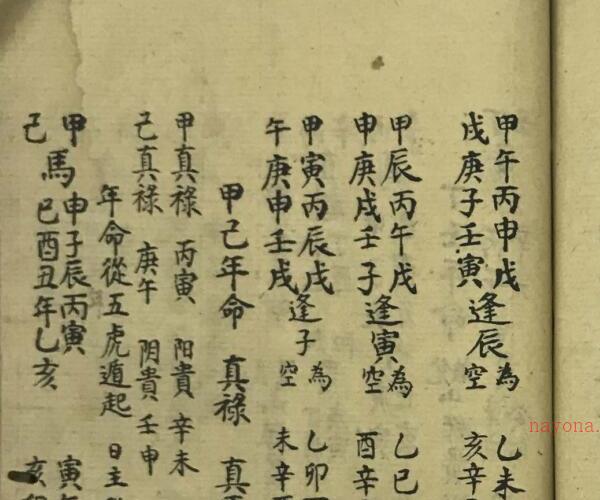 甲午丙申戊
戌庚子壬寅
逢辰
為
空
乙未
亥辛
甲辰丙午戊
申庚戌壬子
逢寅
為
空
乙巳
酉辛
甲寅丙辰戊
午庚申壬戌
逢子
為
空
乙卯
未辛
甲己年命 真祿 真
甲真祿 丙寅 陽貴 辛未
己真祿 庚午 阴貴 壬申
年命從五虎遁起 日主
甲
己
馬
申子辰丙寅 寅
巳酉丑年乙亥 亥
nayona.